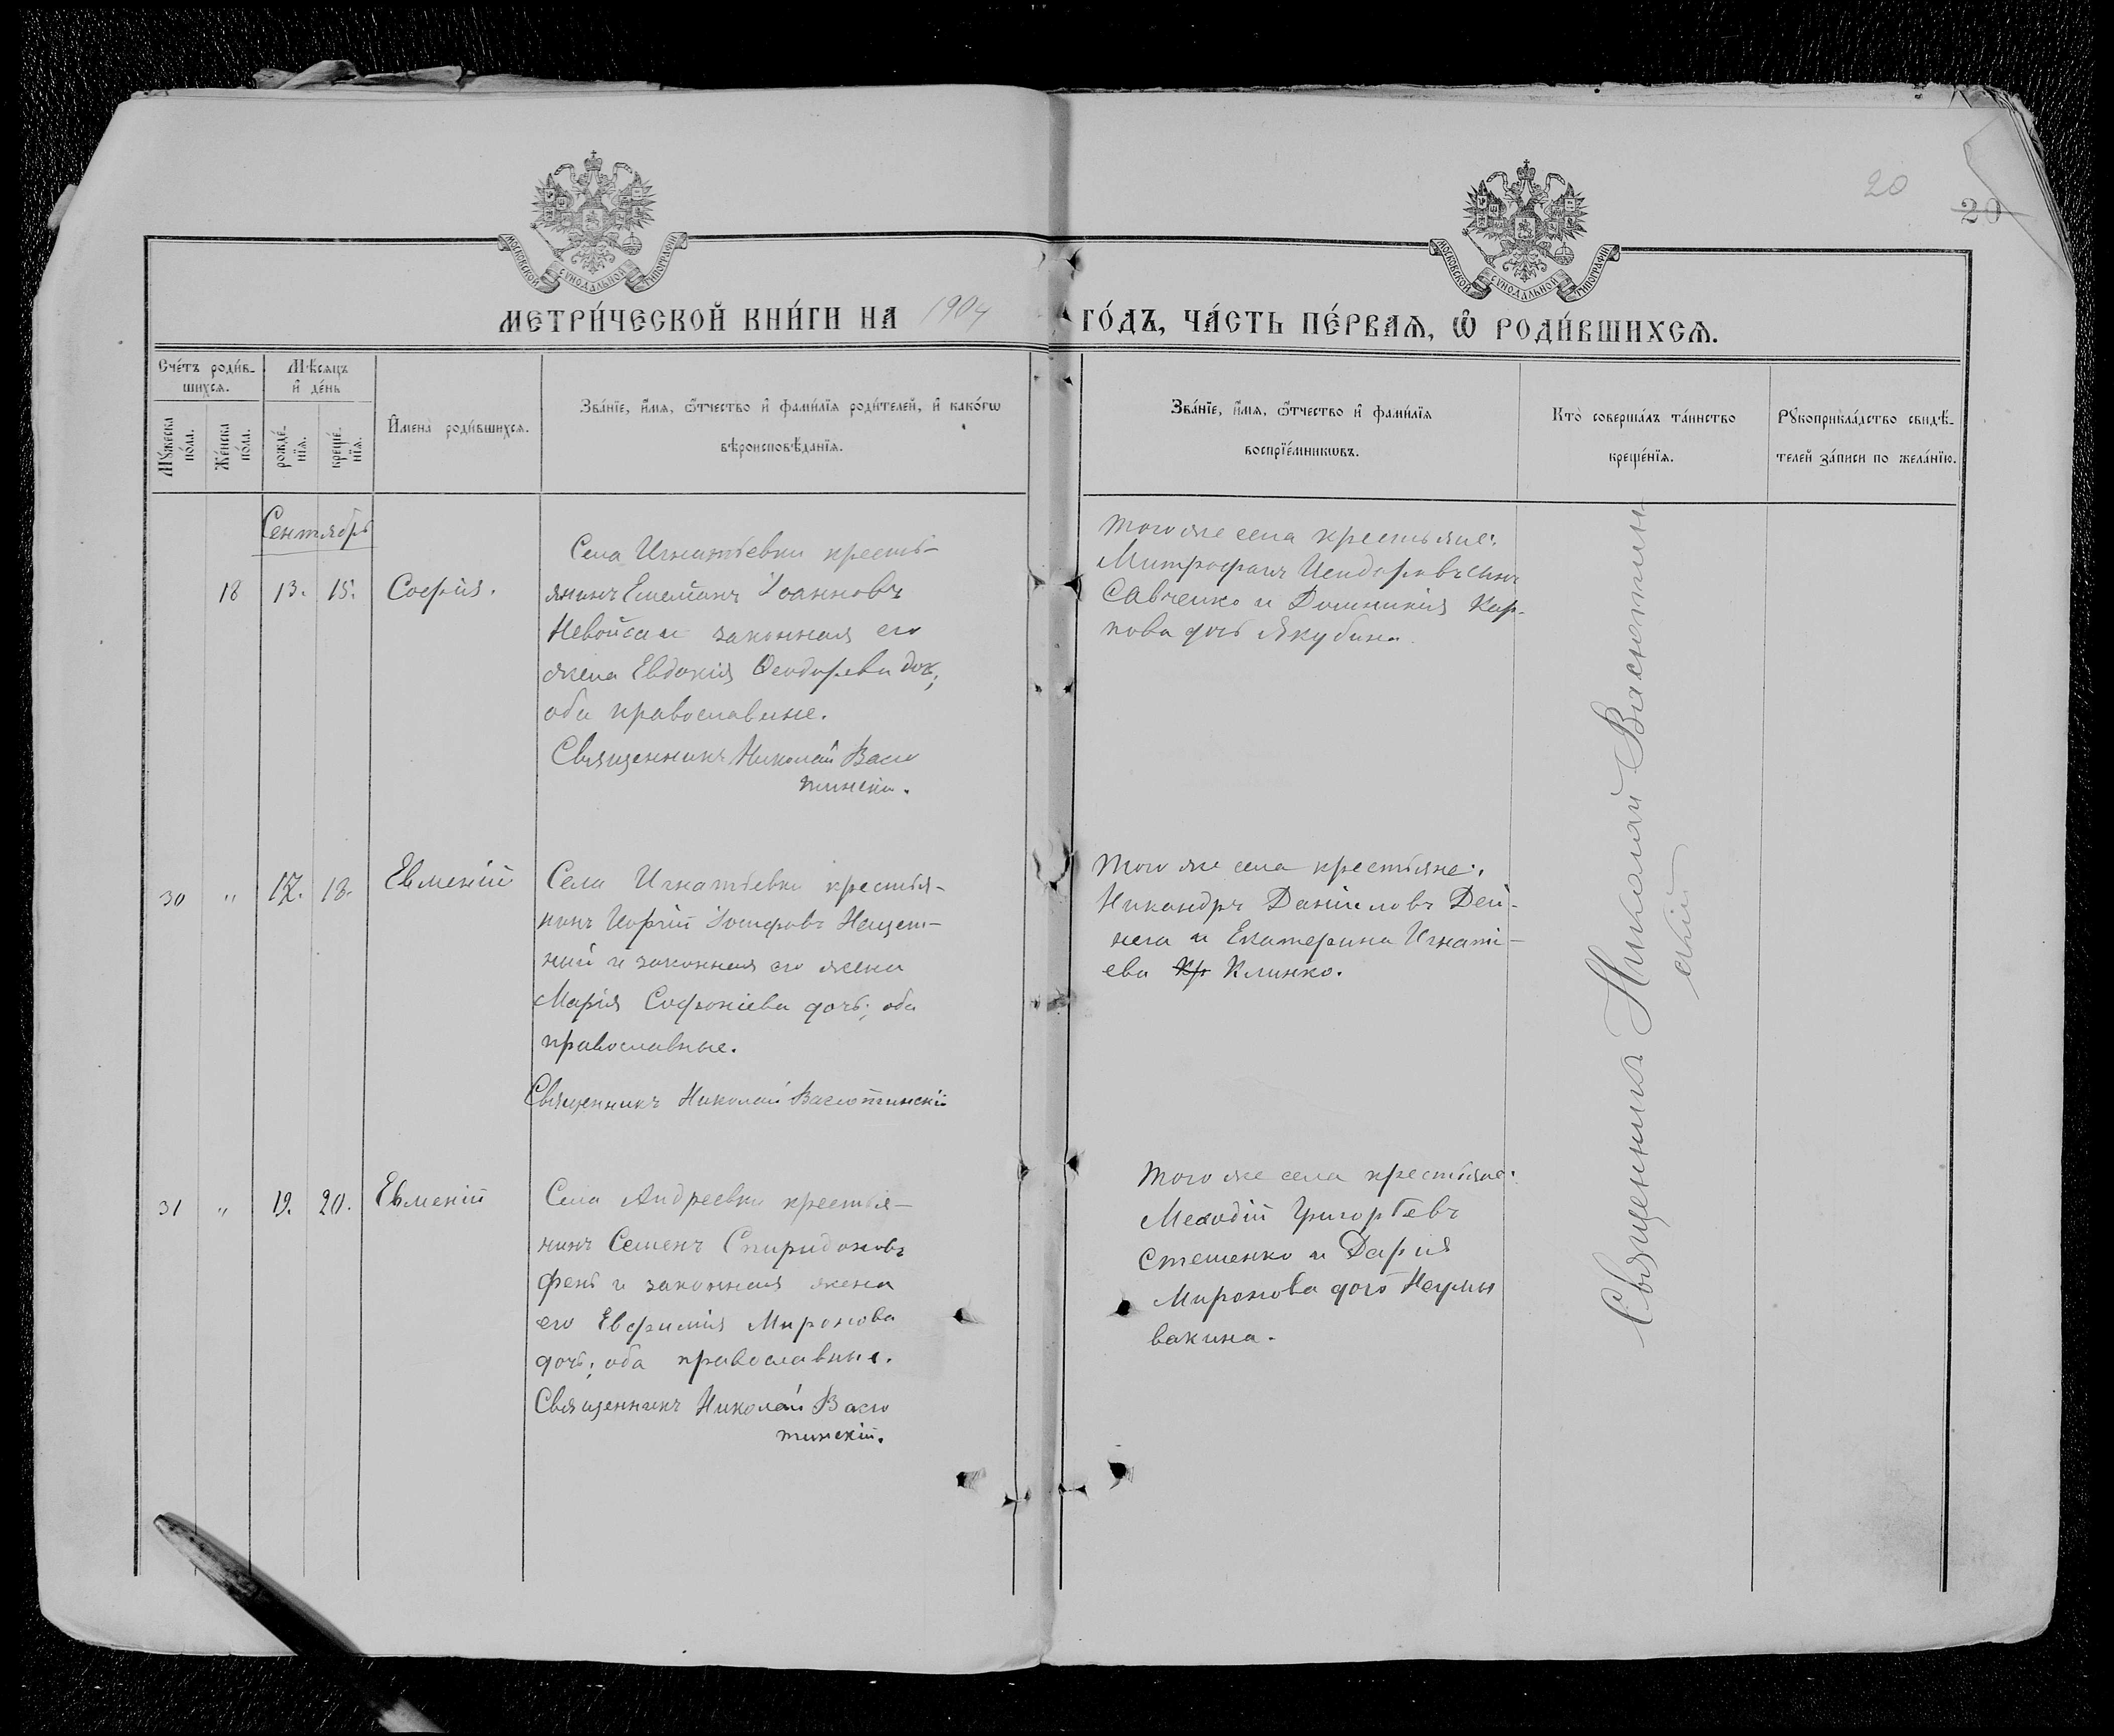 МОСКОВСКОЙ СУНОДАЛЬНОЙ ТИПОГРАФІИ
МОСКОВСКОЙ СУНОДАЛЬНОЙ ТИПОГРАФІИ
20
20
МЕТРИ́ЧЕСКОЙ КНИ́ГИ НА 1904 ГО́ДЪ, ЧА́СТЬ ПЕ́РВАѦ, Ѽ РОДИ́ВШИХСѦ.
Сче́тъ роди́в-
шихсѧ.
Мѣ́сѧцъ
и҆ де́нь
Мꙋ́жеска
по́ла.
Же́нска
по́ла.
рожде́-
нїѧ.
креще́-
нїѧ.
И҆мена̀ роди́вшихсѧ.
Зва́нїе, и҆́мѧ, ѻ҆́тчество и҆ фамі́лїѧ роди́телей, и҆ како́гѡ
вѣроисповѣ́данїѧ.
Зва́нїе, и҆́мѧ, ѻ҆́тчество и҆ фамі́лїѧ
воспрїе́мникѡвъ.
Кто̀ соверша́лъ та́инство
креще́нїѧ.
Рꙋкоприкла́дство свидѣ́-
телей за́писи по жела́нїю.
Сентябрь
18 13. 15. Софія.
Села Игнатьевки кресть-
янинъ Емельянъ Іоанновъ
Невойса и законная его
жена Евдокія Ѳеодорова доч.;
оба православные.
Священникъ Николай Васю
тинскій.
Того же села крестьяне:
Митрофанъ Исидоровъ сынъ
Савченко и Домникія Кар-
пова дочь Якубина.
30 " 17. 18. Евменій
Села Игнатьевки крестья-
нинъ Іосифовъ
и законная его жена
Марія Софоніева дочь; оба
православные.
Священникъ Николай Васютинскій
Того же села крестьяне:
Никандръ Даніиловъ Дей-
нега и Екатерина Игнатi-
ева Кр Клинко.
31 " 19. 20. Евменій
Села Андреевки крестья-
нинъ Семенъ Спиридоновъ
Фень и законная жена
его Евфимія Миронова
дочь; оба православные.
Священникъ Николай Васю
тинскій.
Того же села крестьяне:
Меѳодій Григорьевъ
Стешенко и Дарія
Миронова дочь
вакина.
Священникъ Николай Васютин
скій